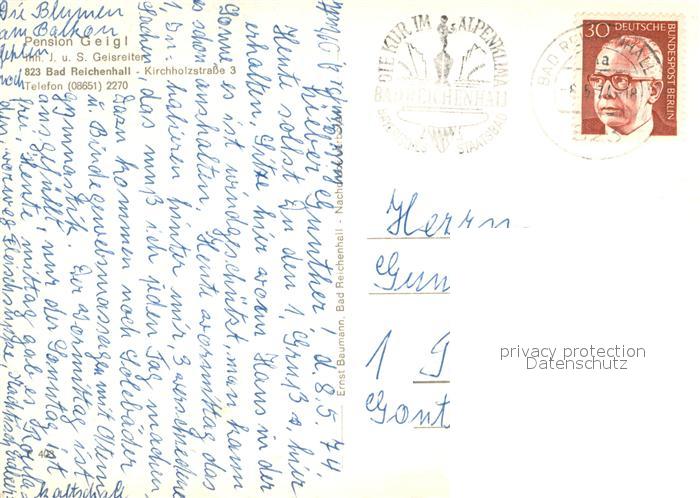 Die Blumen
am Balkon
fehlen
noch
Pension Geigl
Inh. J. u. S. Geisreiter
823 Bad Reichenhall - Kirchholzstraße 3
Telefon (08651) 2270
DIE KUR IM ALPENKLIMA
BAD REICHENHALL
STAATSBAD
BAD REICHENHALL
a
30 DEUTSCHE
BUNDESPOST BERLIN
d. 8.5.74
Lieber Gunther!
Heute sollst Du den 1. Gruß v. hier
erhalten, sitze hier vorm Haus in der
Sonne, es ist windgeschützt, man kann
es schon aushalten. Heute vormittag das
1. Inhalieren hinter mir, 3 verschiedene
Sachen, das muß ich jeden Tag machen,
dazu kommen noch Solebäder
u. Bindegewebsmassagen mit Atem
gymnastik. Der Vormittag ist
ausgefüllt, nur der Sonntag ist
frei. Heute mittag gab es
vorweg Fleischbrühe,
Kaltschale
Ernst Baumann, Bad Reichenhall - Nachdruck
403
Herrn
Gun
1
Gont
privacy protection
Datenschutz